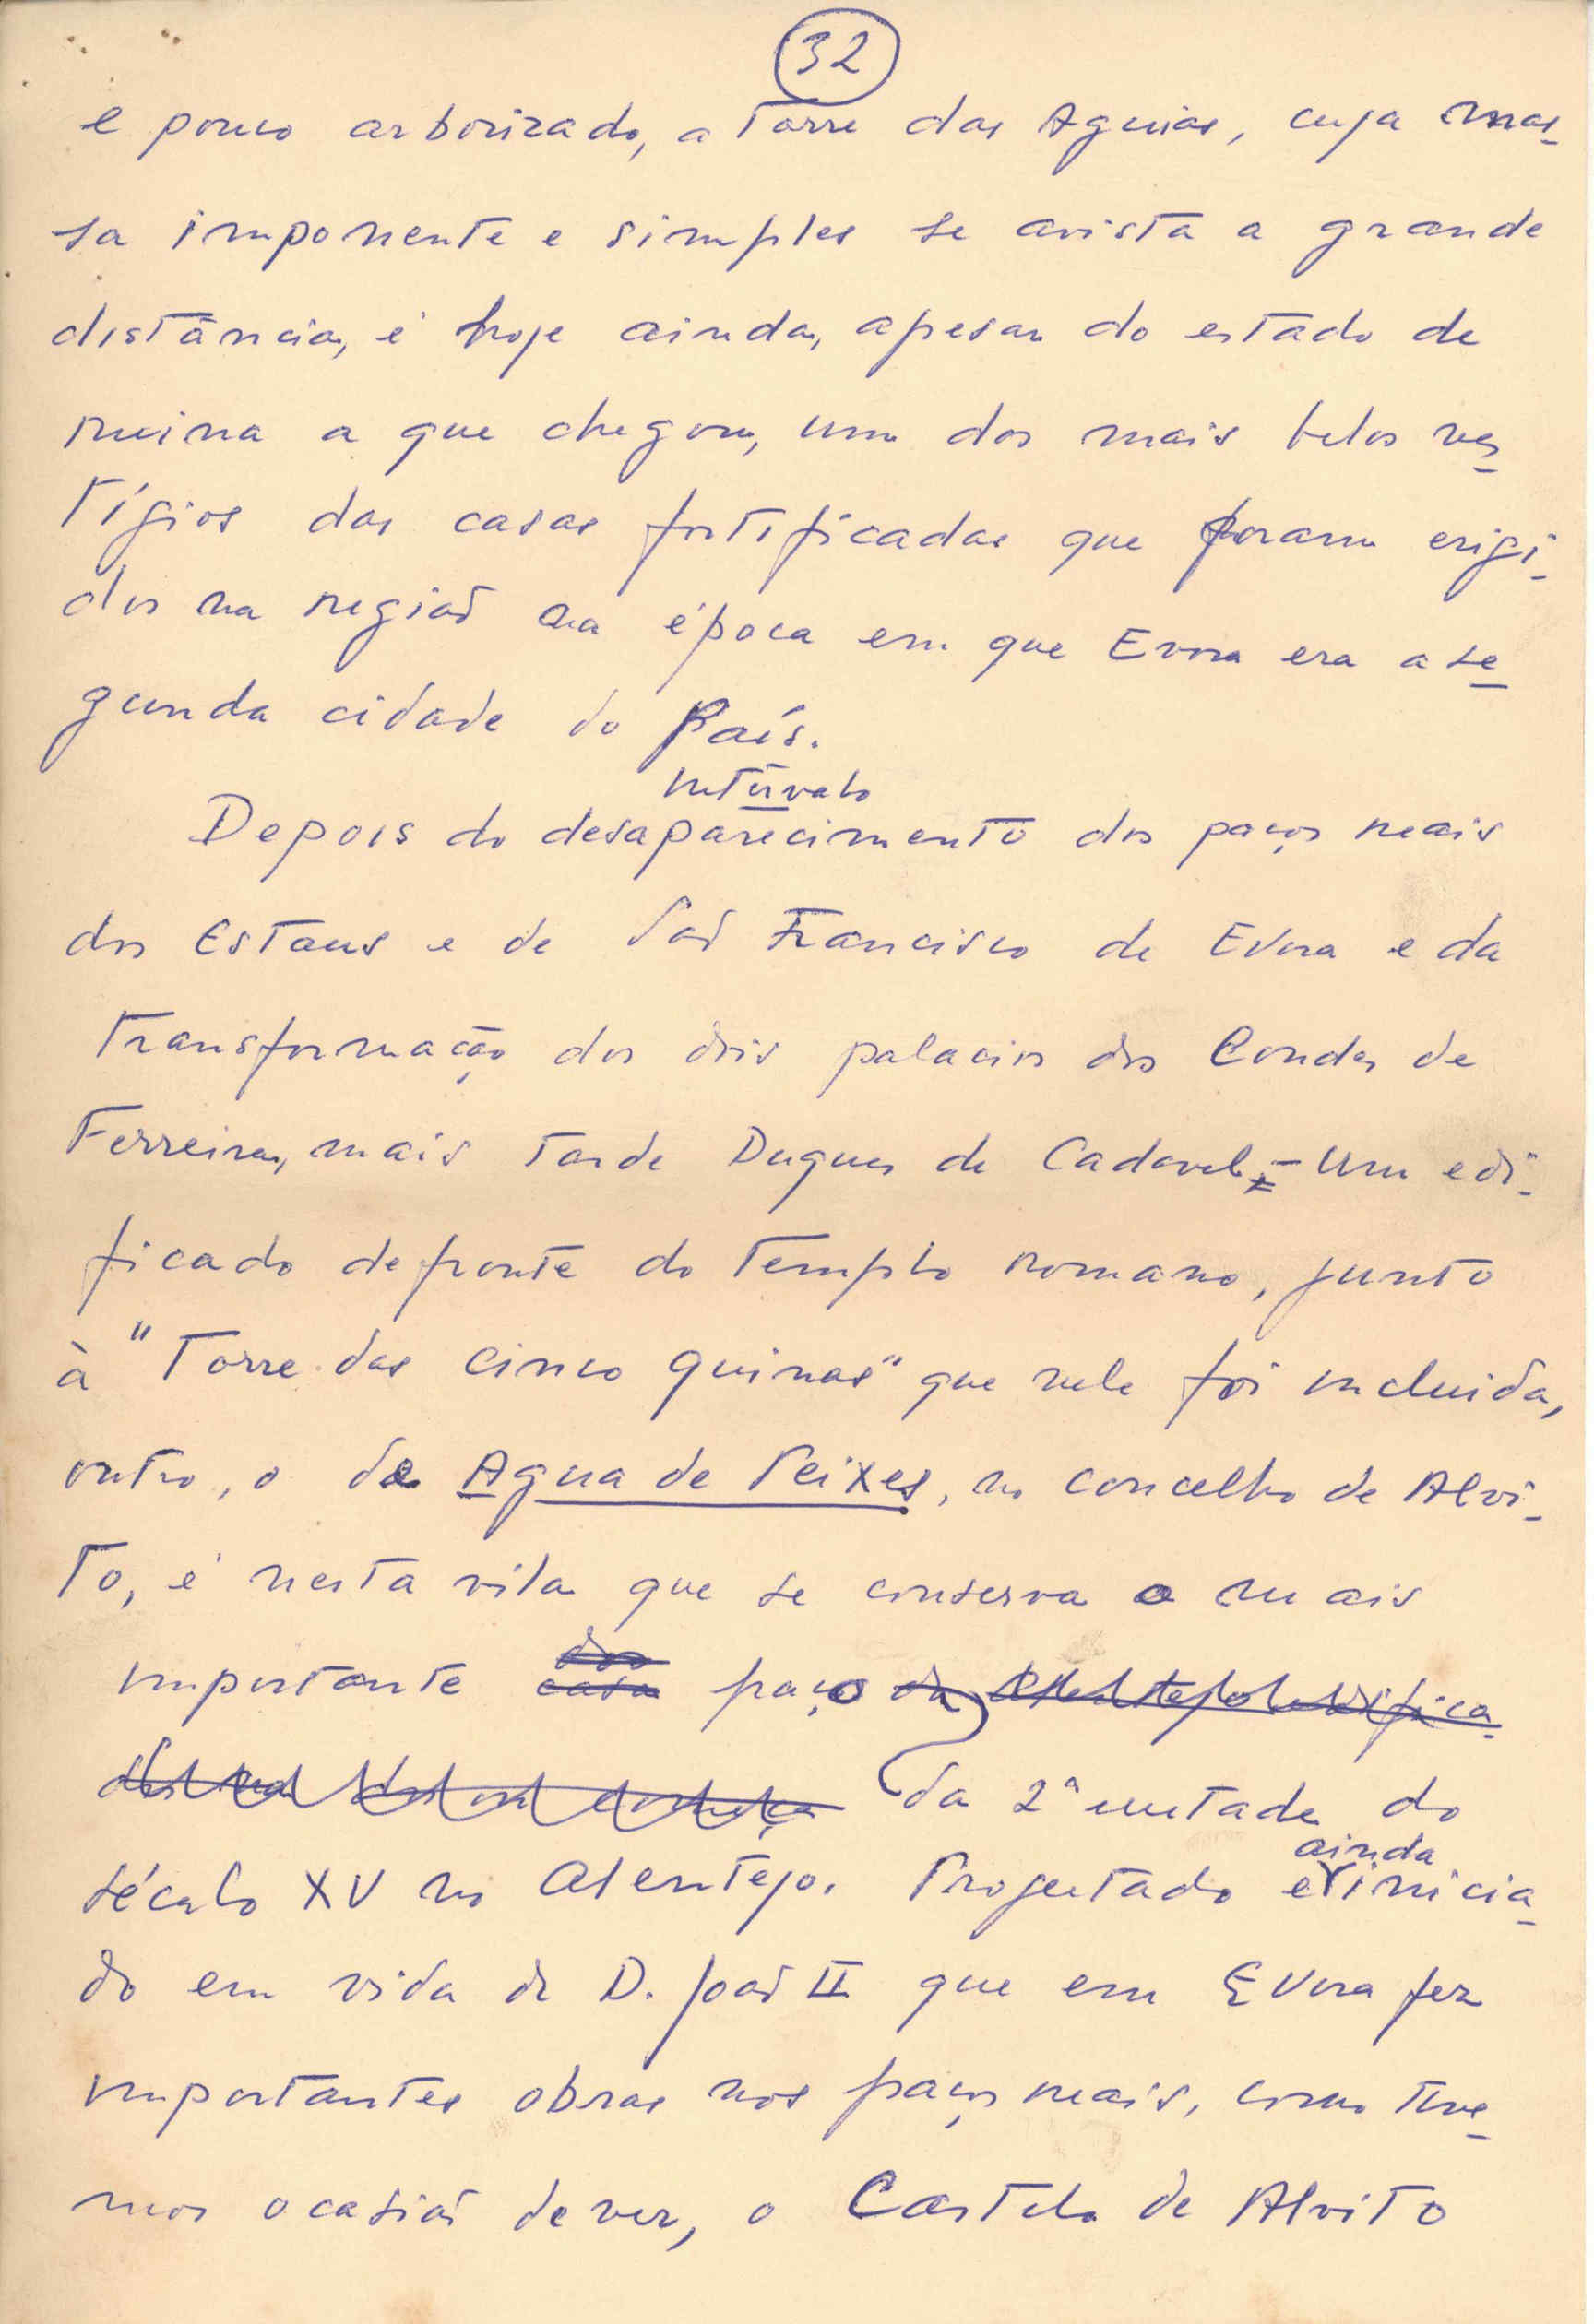 32
e pouco arborizado, a Torre das Aguias, cuja mas-
sa imponente e simples se avista a grande
distância, é hoje ainda, apesar do estado de
ruina a que chegou, um dos mais belos ves-
tígios das casas fortificadas que foram erigi-
dos na região na época em que Evora era a se-
gunda cidade do País.
Depois do desaparecimento dos paços reais
dos Estaus e de São Francisco de Evora e da
transformação dos dois palacios dos Condes de
Ferreira, mais tarde Duques de Cadaval - um edi-
ficado defronte do templo romano, junto
à "Torre das cinco quinas" que nele foi incluida,
outro, o de Agua de Peixes, no concelho de Alvi-
to, é nesta vila que se conserva o mais
dos
importante casa paço da
da 2ª metade do
ainda
século XV no Alentejo. Projectado e inicia-
do em vida de D. João II que em Evora fez
importantes obras nos paços reais, como tive-
mos ocasião de ver, o Castelo de Alvito